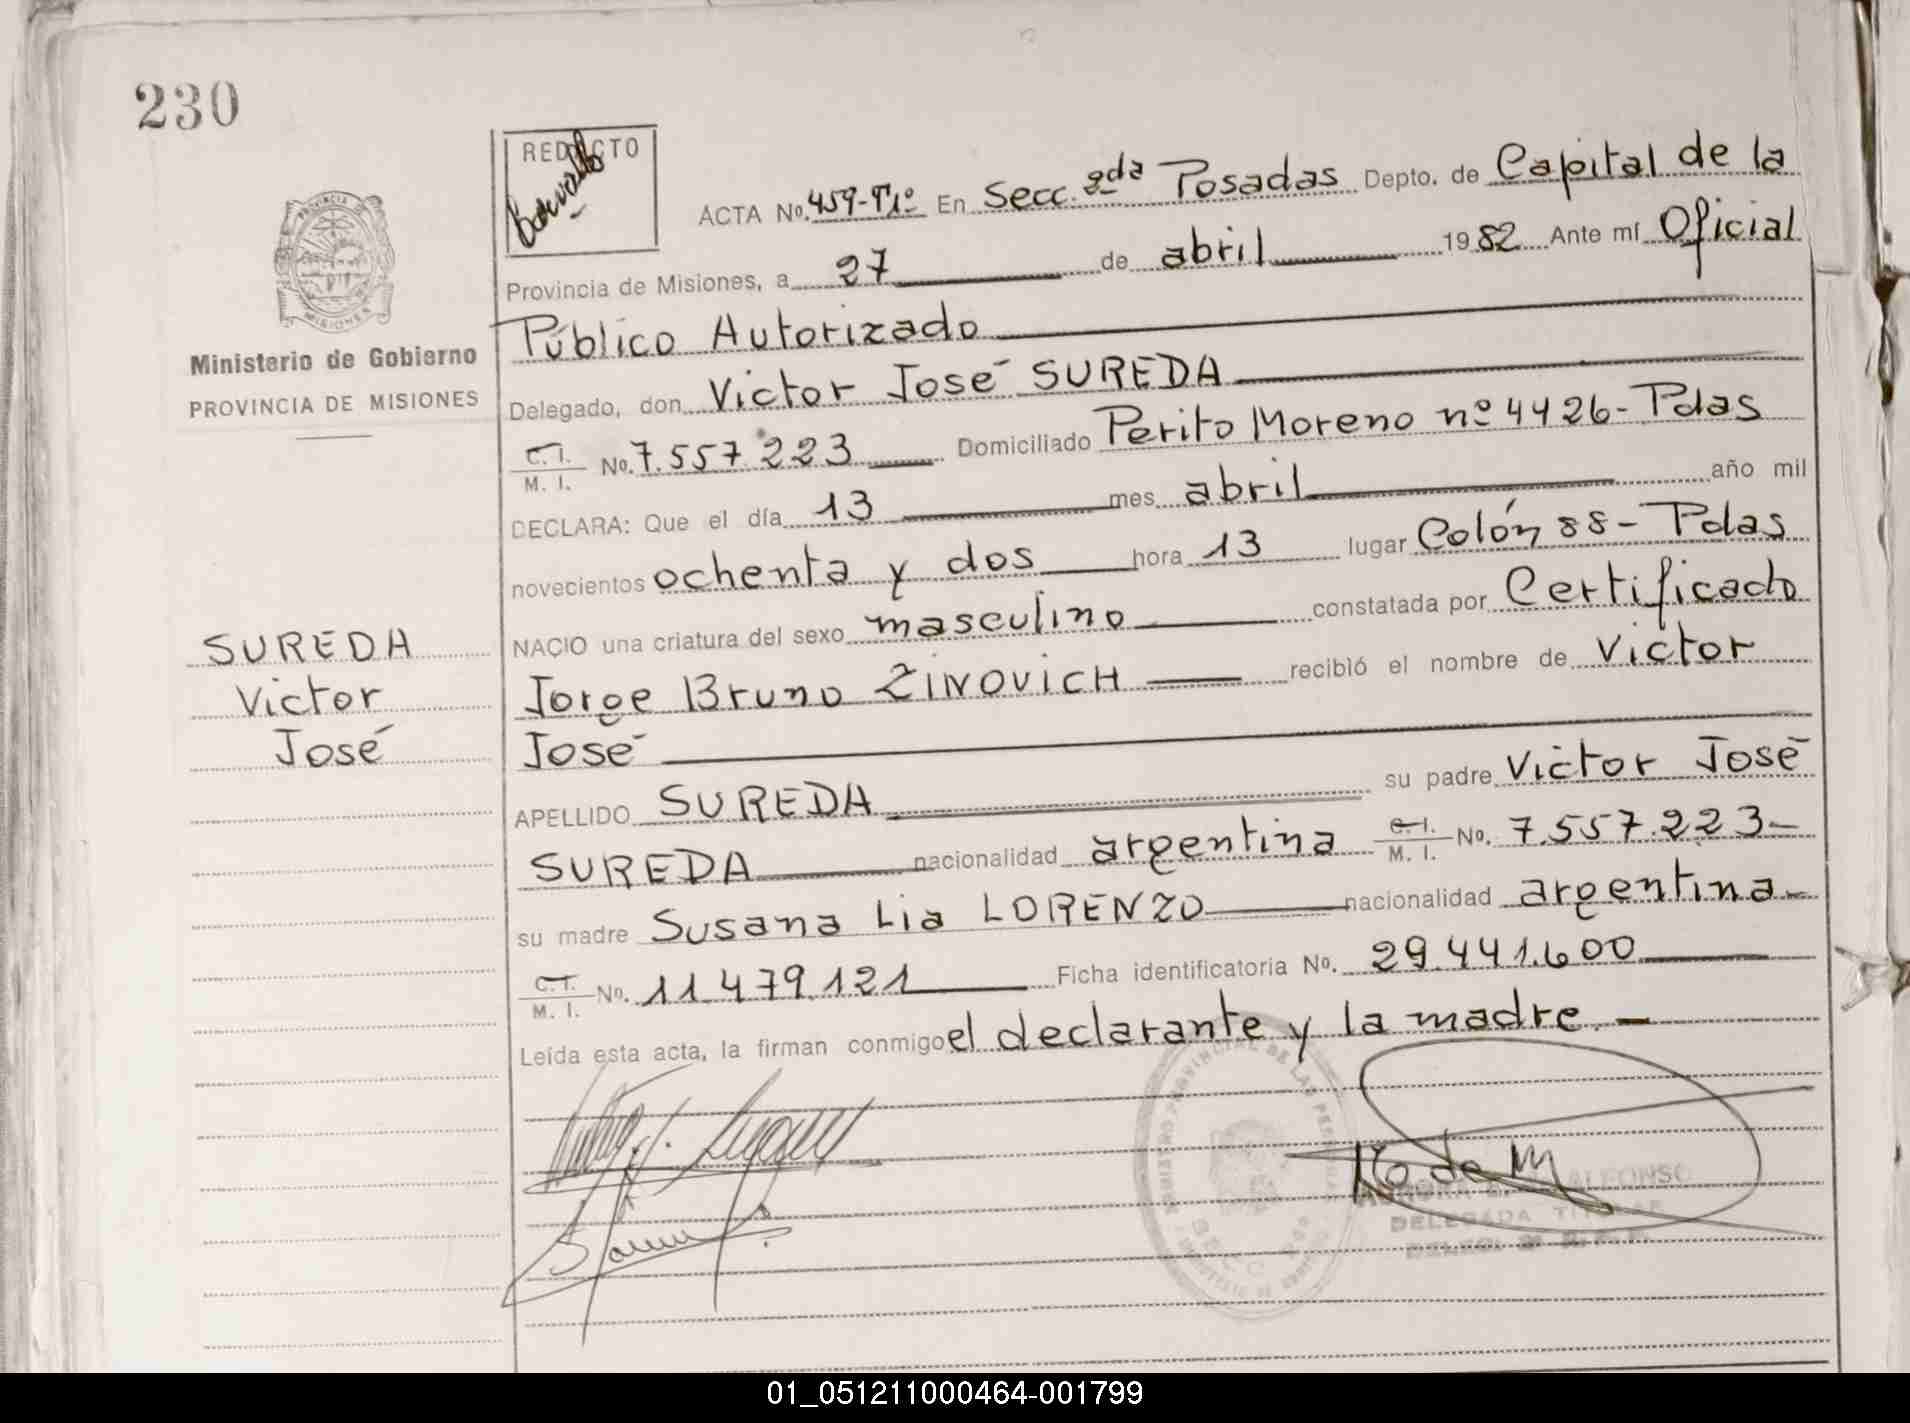 230
REDACTO
ACTA No. 459-Tº1º En Secc. 2da Posadas Depto. de Capital de la
Provincia de Misiones, a 27 de abril 1982 Ante mí Oficial
Público Autorizado
Delegado, don Victor José SUREDA
C.I.
M. I. No. 7.557.223 Domiciliado Perito Moreno nº 4426- Pdas
DECLARA: Que el día 13 mes abril año mil
novecientos ochenta y dos hora 13 lugar Colón 88- Pdas
NACIO una criatura del sexo masculino constatada por Certificado
Jorge Bruno ZINOVICH recibió el nombre de Victor
José
APELLIDO SUREDA su padre Victor José
SUREDA nacionalidad argentina C.I.
M. I. No. 7.557.223-
su madre Susana Lia LORENZO nacionalidad argentina-
C.I.
M. I. No. 11.479.121 Ficha identificatoria No. 29.441.600
Leída esta acta, la firman conmigo el declarante y la madre.-
PROVINCIA DE
MISIONES
Ministerio de Gobierno
PROVINCIA DE MISIONES
SUREDA
Victor
José
DELEGADA TITULAR
01_051211000464-001799